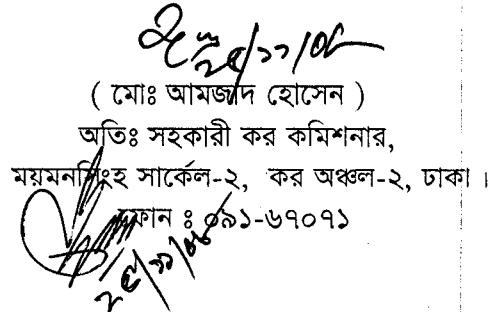 ২৫/১১/০৮
( মোঃ আমজাদ হোসেন )
অতিঃ সহকারী কর কমিশনার,
ময়মনসিংহ সার্কেল-২, কর অঞ্চল-২, ঢাকা ।
ফোন ঃ ০৯১-৬৭০৭১
২৫/১১/০৮